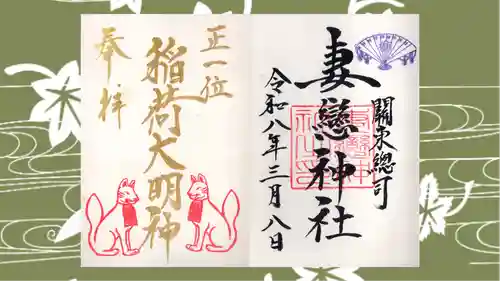 關東總司
妻戀神社
令和八年三月八日
正一位
稲荷大明神
奉拝